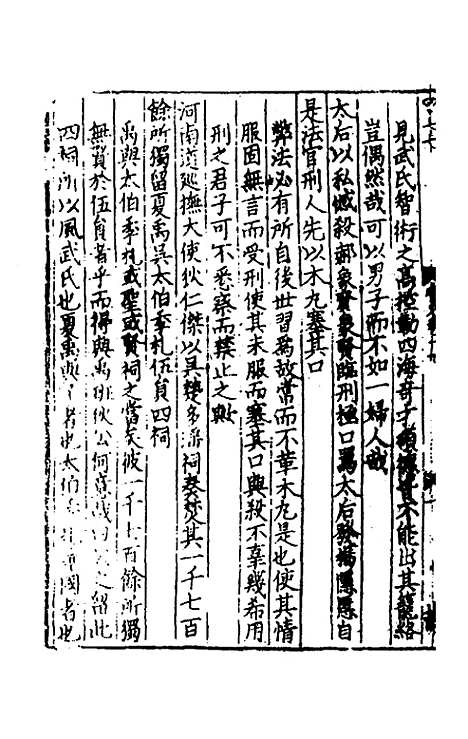 見武氏智術之高控動四海奇子能出其籠絡
豈偶然哉可以男子而不如一婦人哉
太后以私憾殺郝象賢象賢臨刑極口罵太后發揚隱慝自
是法官刑人先以木丸塞其口
弊法必有所自後世習為故常而不革木丸是也使其情
服固無言而受刑使其未服而塞其口與殺不辜幾希用
刑之君子可不悉察而禁止之歟
河南道巡撫大使狄仁傑以吳楚多淫祠奏焚其一千七百
餘所獨留夏禹吳太伯季札伍員四祠
禹與太伯季札或聖或賢祠之當矣彼一千七百餘所獨
無賢於伍員者乎而得與禹並狄公何意哉曰之留此
四祠所以風武氏也夏禹者也太伯國者也